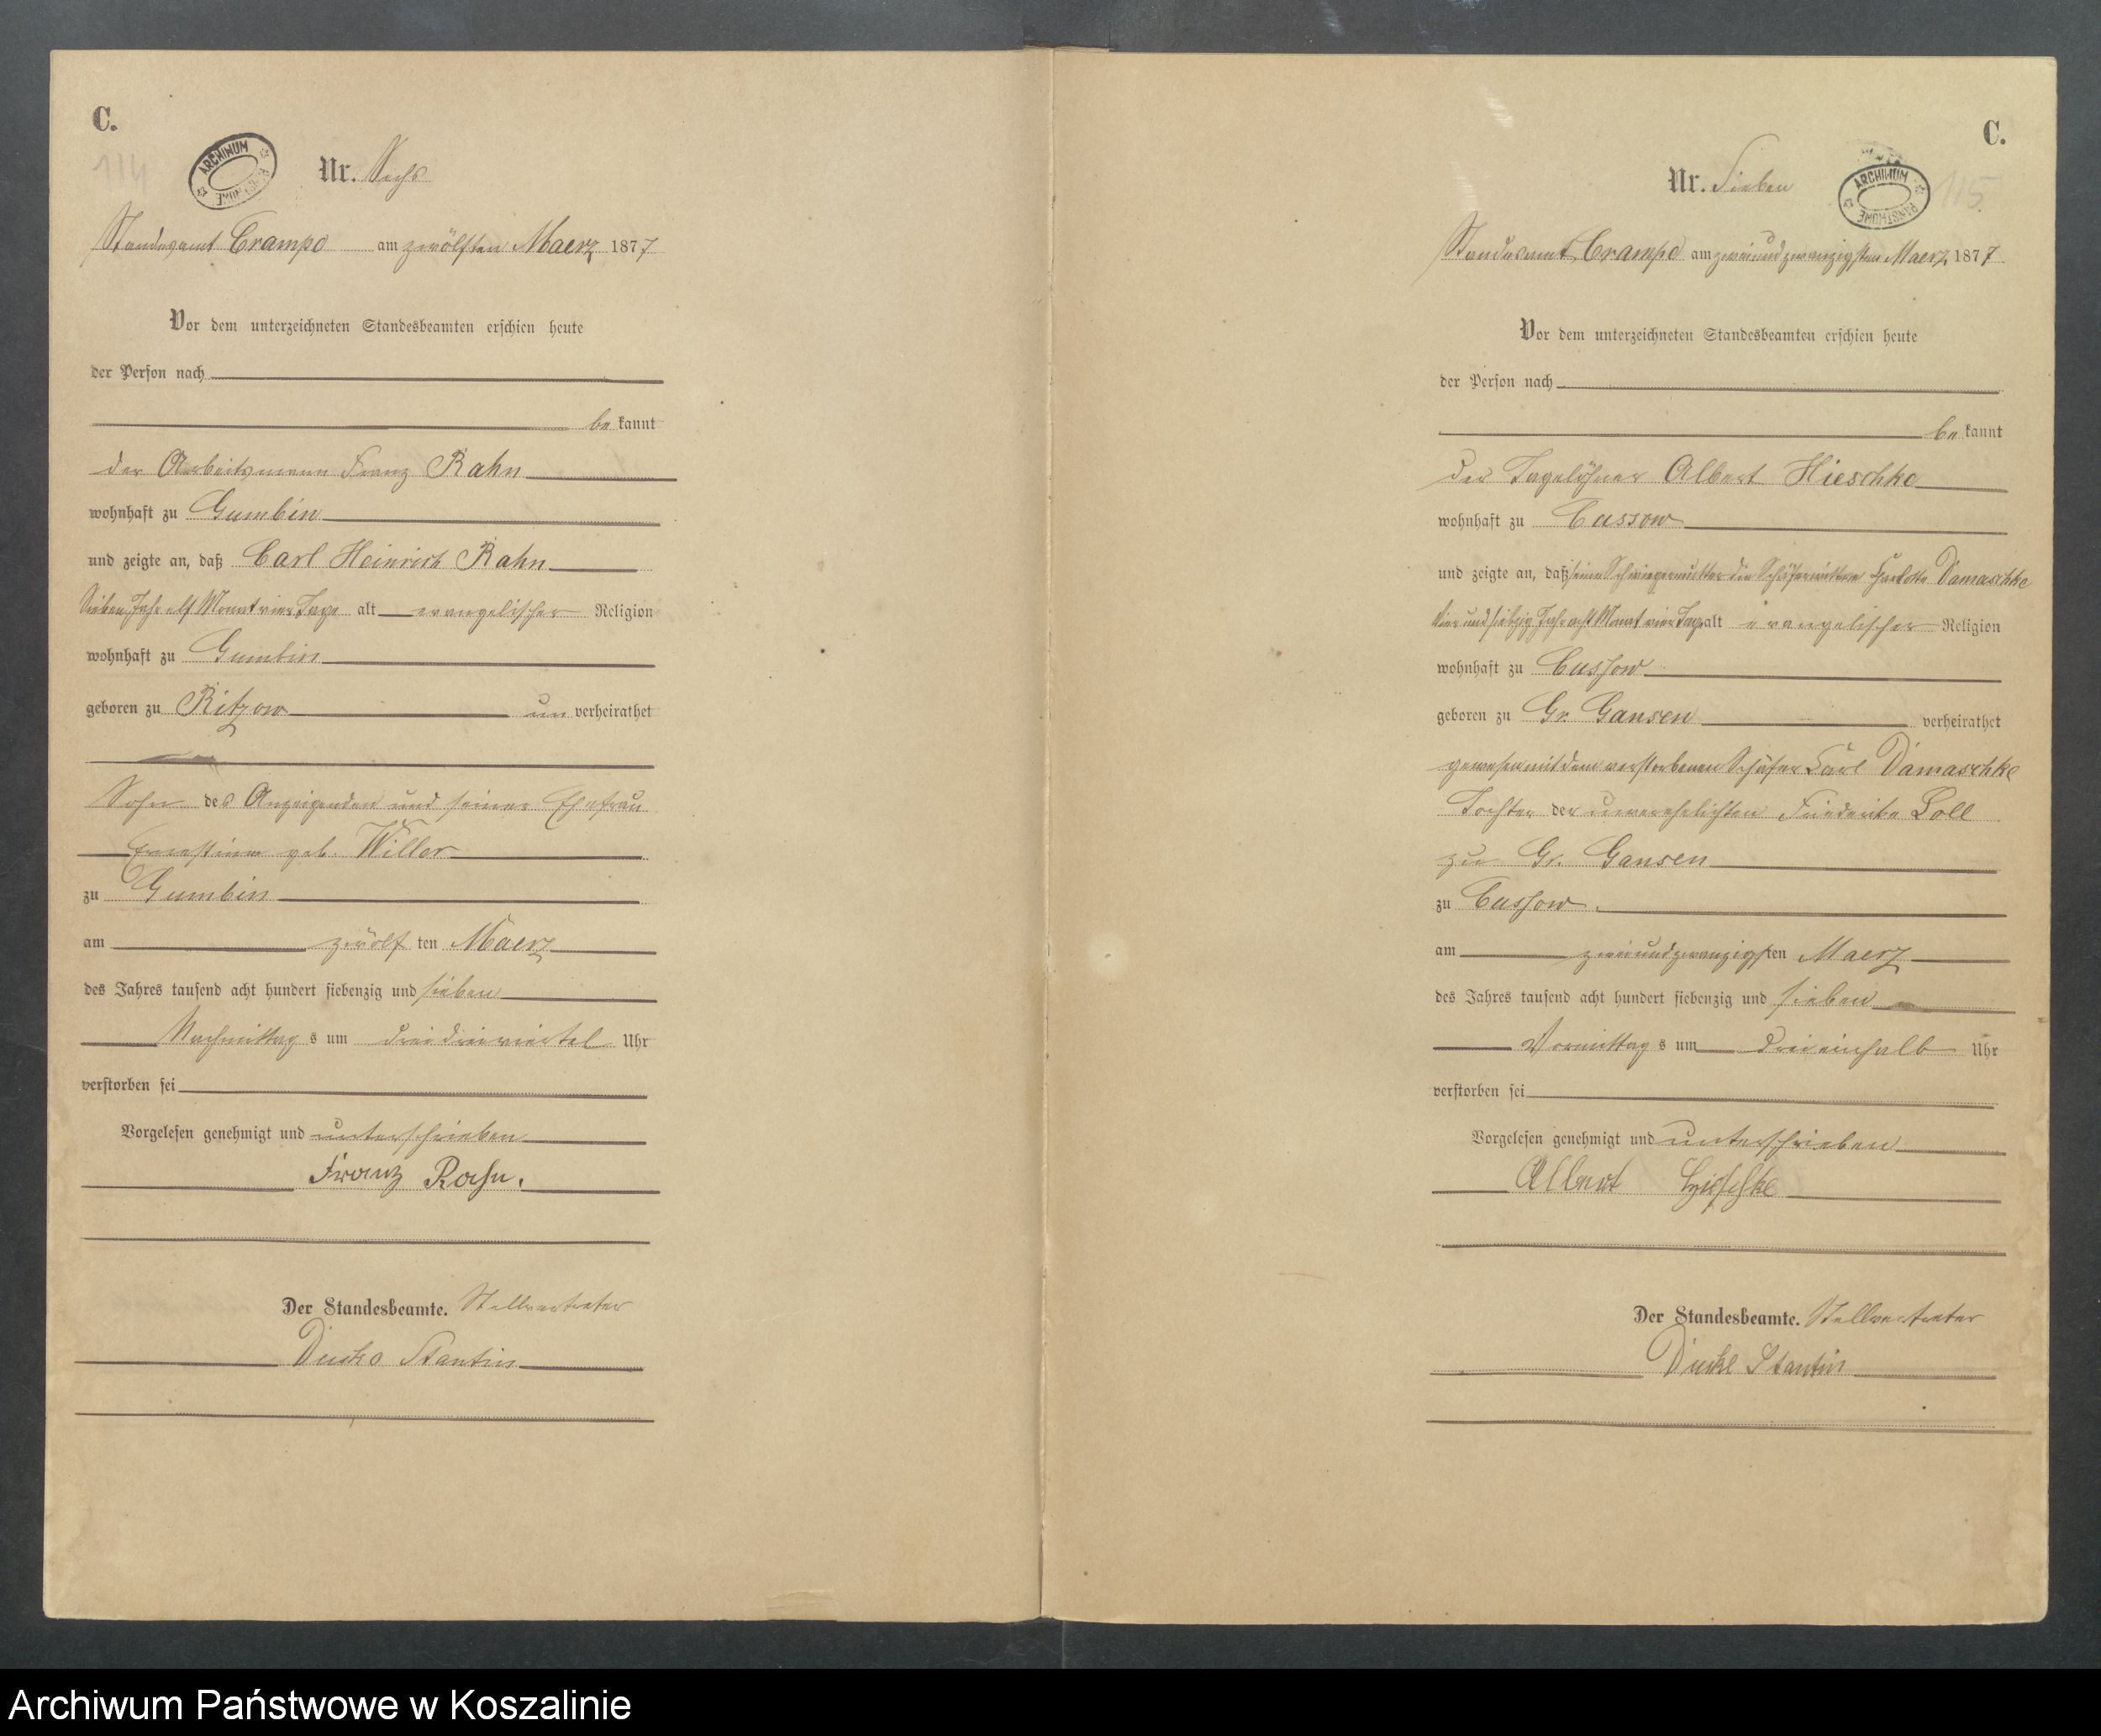 C.
114
ARCHIWUM PAŃSTWOWE
Nr. Sechs
Standesamt Crampe am zwölften Maerz 1877
Vor dem unterzeichneten Standesbeamten erschien heute
der Person nach
be kannt
der Arbeitsmann Franz Rahn
wohnhaft zu Gumbin
und zeigte an, daß Carl Heinrich Rahn
Sieben Jahr elf Monat vier Tage alt evangelischer Religion
wohnhaft zu Gumbin
geboren zu Ritzow un verheirathet
Sohn des Anzeigenden und seiner Ehefrau
Ernestine geb. Willer
zu Gumbin
am zwölf ten Maerz
des Jahres tausend acht hundert siebenzig und sieben
Nachmittag s um drei dreiviertel Uhr
verstorben sei
Vorgelesen genehmigt und unterschrieben
Franz Rahn.
Der Standesbeamte. Stellvertreter
Stantin
C.
115
ARCHIWUM PAŃSTWOWE
Nr. Sieben
Standesamt Crampe am zweiundzwanzigsten Maerz 1877
Vor dem unterzeichneten Standesbeamten erschien heute
der Person nach
be kannt
der Tagelöhner Albert Hieschke
wohnhaft zu Cussow
und zeigte an, daß seine Schwiegermutter die Schäferwittwe Charlotte Damaschke
Vier und siebzig Jahr acht Monat vier Tag alt evangelischer Religion
wohnhaft zu Cussow
geboren zu Gr. Gansen verheirathet
gewesen mit dem verstorbenen Schäfer Carl Damaschke
Tochter der unverehelichten Friederike Loll
zu Gr. Gansen
zu Cussow.
am zweiundzwanzigsten Maerz
des Jahres tausend acht hundert siebenzig und sieben
Vormittag s um drei einhalb Uhr
verstorben sei
Vorgelesen genehmigt und unterschrieben
Albert Hieschke
Der Standesbeamte. Stellvertreter
Stantin
Archiwum Państwowe w Koszalinie